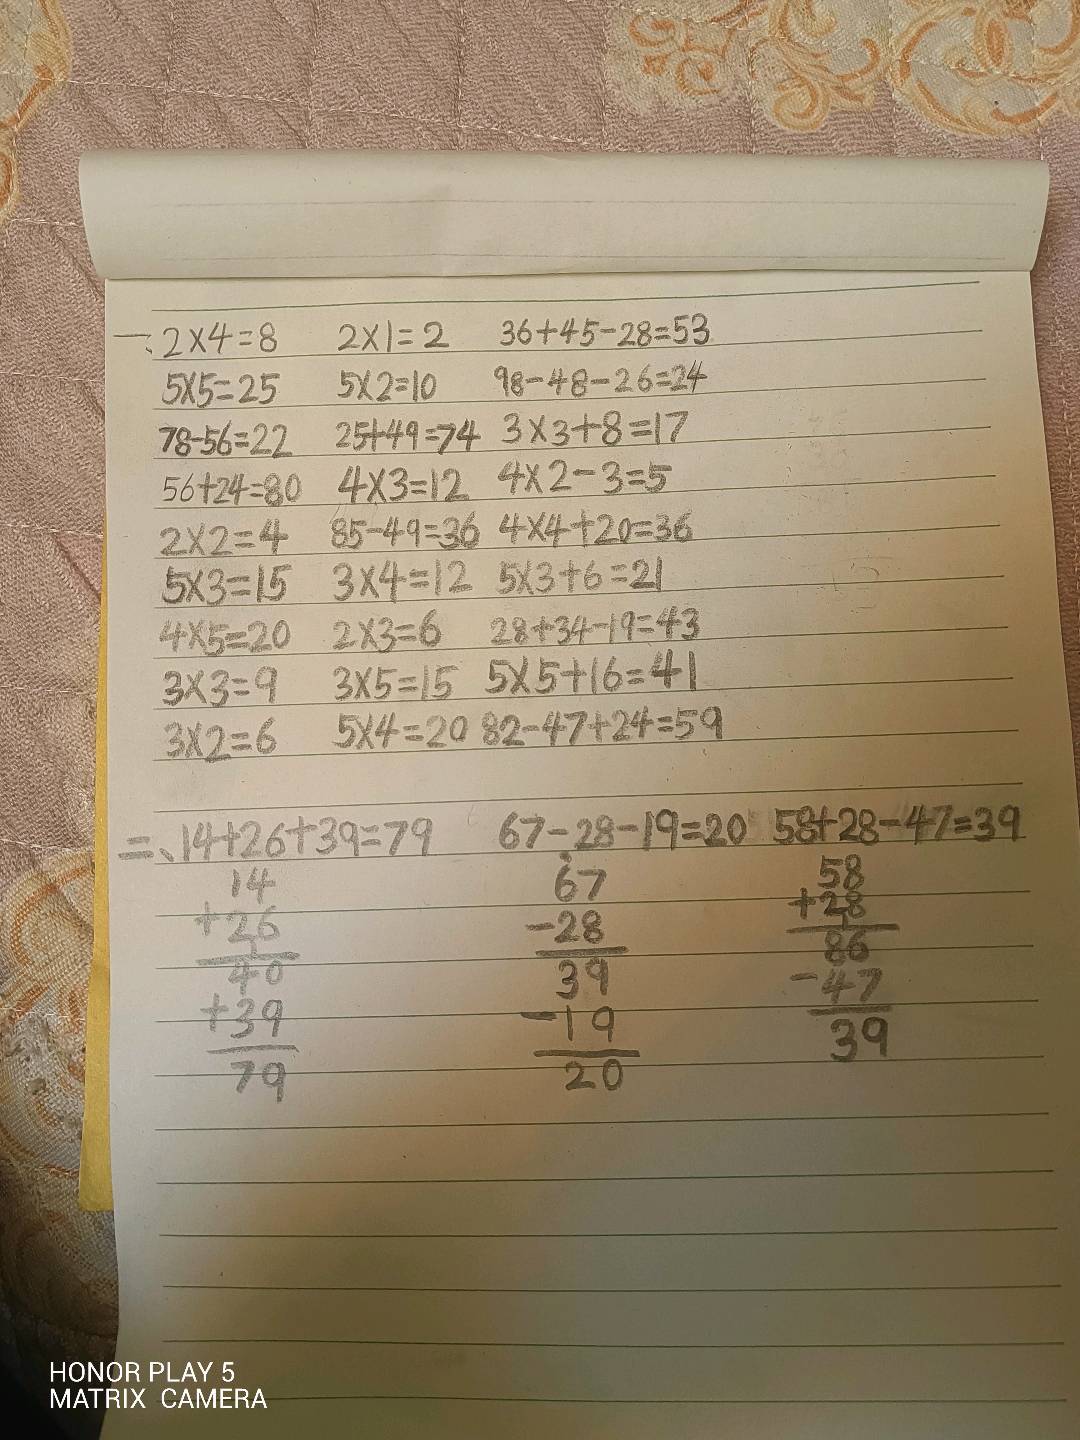 一、2×4=8 2×1=2 36+45-28=53
5×5=25 5×2=10 98-48-26=24
78-56=22 25+49=74 3×3+8=17
56+24=80 4×3=12 4×2-3=5
2×2=4 85-49=36 4×4+20=36
5×3=15 3×4=12 5×3+6=21
4×5=20 2×3=6 28+34-19=43
3×3=9 3×5=15 5×5+16=41
3×2=6 5×4=20 82-47+24=59
二、14+26+39=79 67-28-19=20 58+28-47=39
14 67 58
+26 -28 +28
1 1
40 39 86
+39 -19 -47
79 20 39
HONOR PLAY 5
MATRIX CAMERA